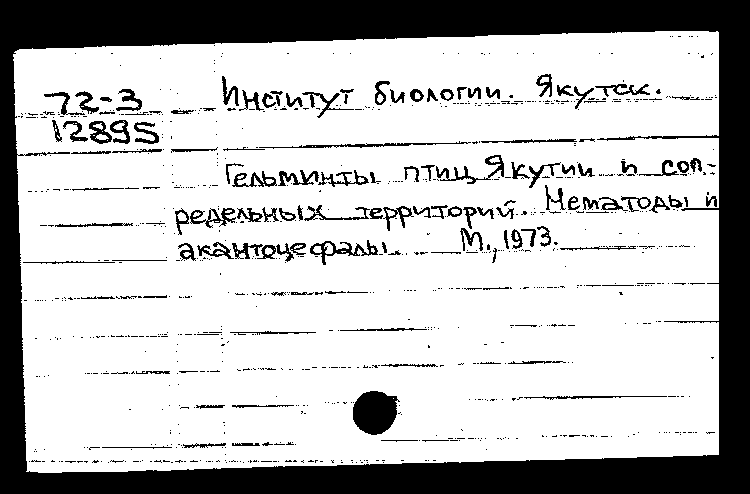 72-3
12895
Институт биологии. Якутск.
Гельминты птиц Якутии и соп-
редельных территорий. Нематоды и
акантоцефалы. М., 1973.